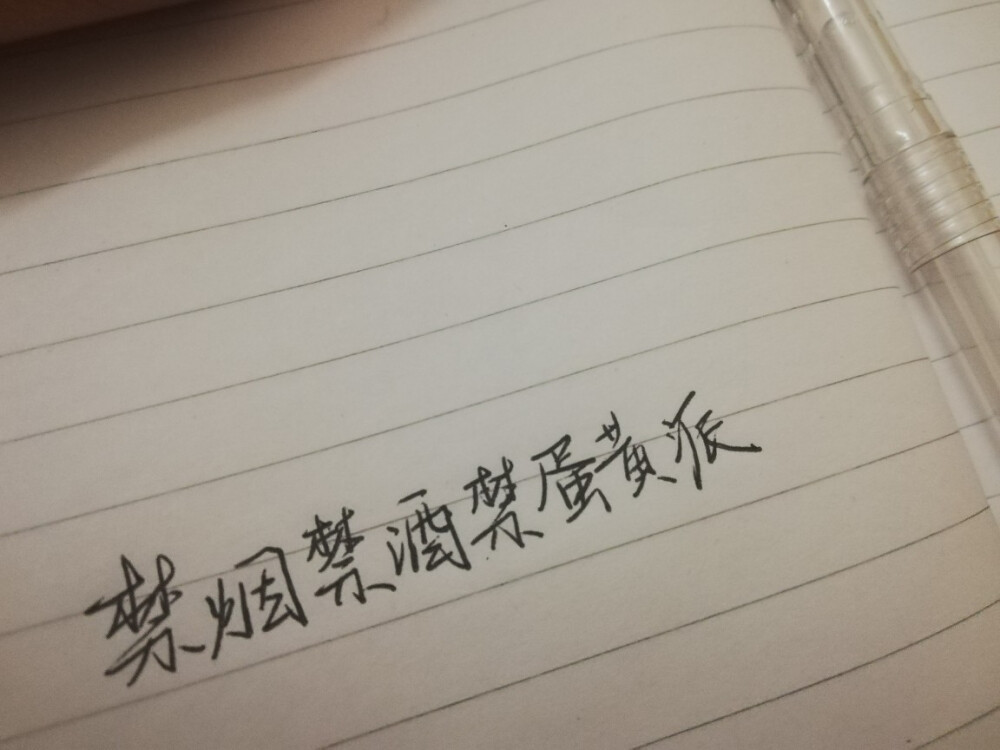 禁烟禁酒禁蛋黄派